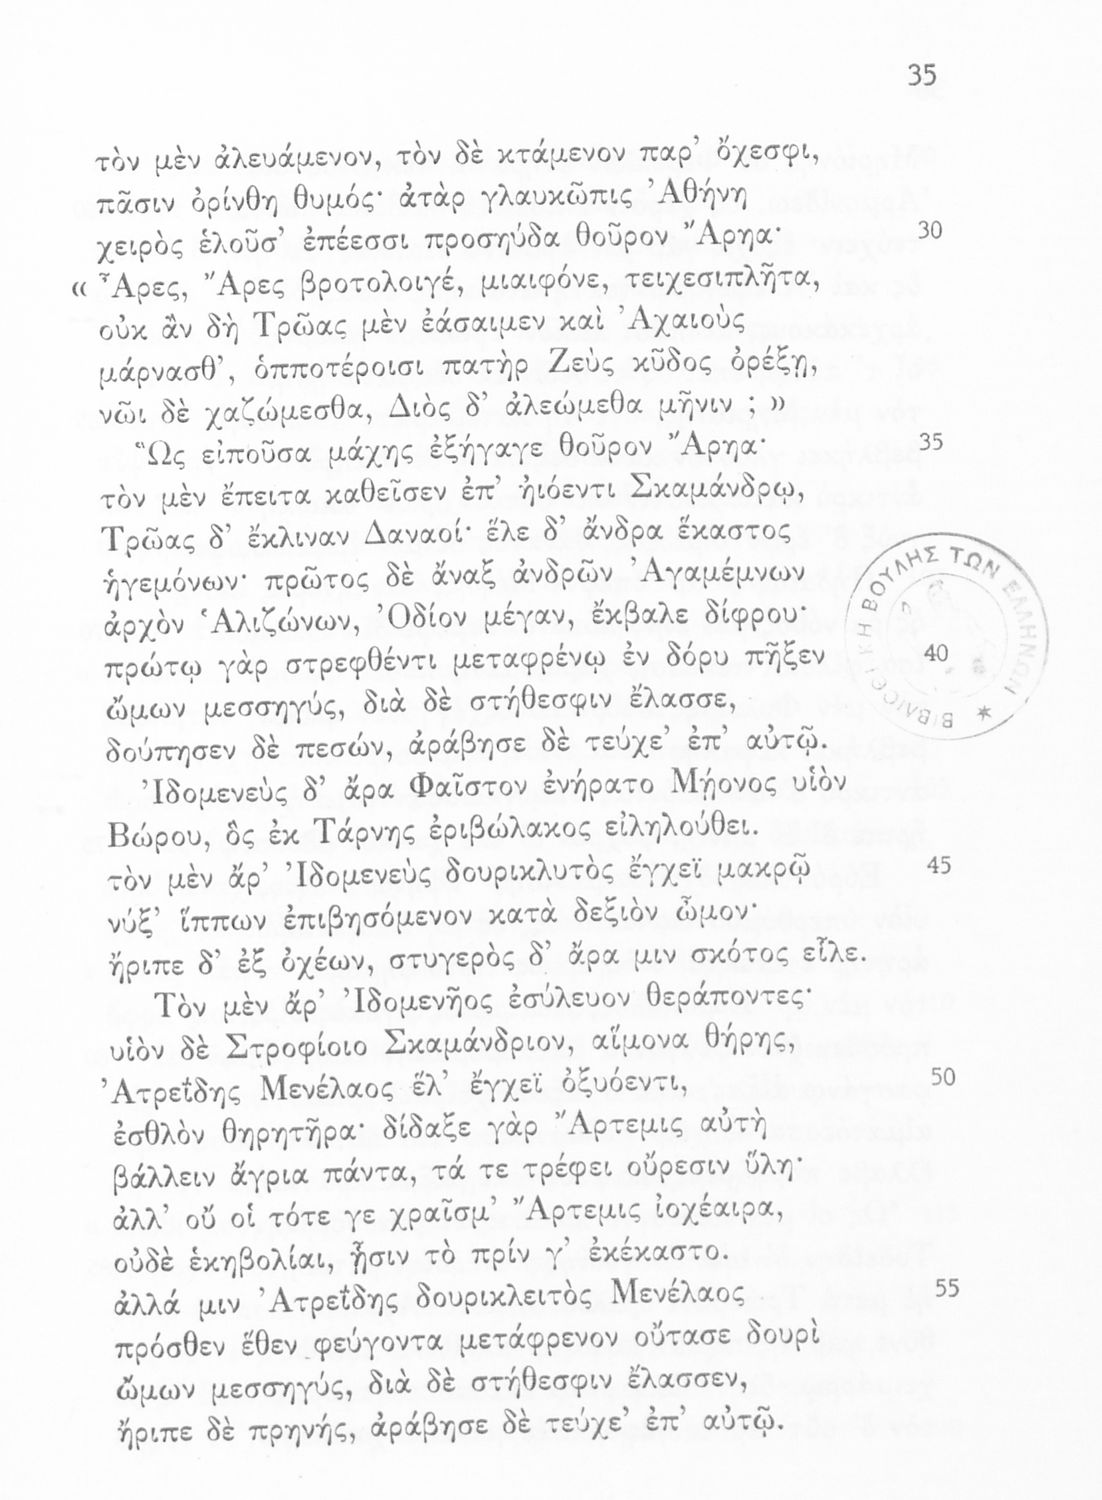 35
τὸν μὲν ἀλευάμενον, τὸν δὲ κτάμενον παρ’ ὄχεσφι,
πᾶσιν ὀρίνθη θυμός· ἀτὰρ γλαυκῶπις Ἀθήνη
χειρὸς ἑλοῦσ’ ἐπέεσσι προσηύδα θοῦρον Ἄρηα· 30
« Ἆρες, Ἄρες βροτολοιγέ, μιαιφόνε, τειχεσιπλῆτα,
οὐκ ἂν δὴ Τρῶας μὲν ἐάσαιμεν καὶ Ἀχαιοὺς
μάρνασθ’, ὁπποτέροισι πατὴρ Ζεὺς κῦδος ὀρέξῃ,
νῶι δὲ χαζώμεσθα, Διὸς δ’ ἀλεώμεθα μῆνιν ; »
Ὣς εἰποῦσα μάχης ἐξήγαγε θοῦρον Ἄρηα· 35
τὸν μὲν ἔπειτα καθεῖσεν ἐπ’ ἠιόεντι Σκαμάνδρῳ,
Τρῶας δ’ ἔκλιναν Δαναοί· ἕλε δ’ ἄνδρα ἕκαστος
ἡγεμόνων· πρῶτος δὲ ἄναξ ἀνδρῶν Ἀγαμέμνων
ἀρχὸν Ἁλιζώνων, Ὀδίον μέγαν, ἔκβαλε δίφρου·
πρώτῳ γὰρ στρεφθέντι μεταφρένῳ ἐν δόρυ πῆξεν 40
ὤμων μεσσηγύς, διὰ δὲ στήθεσφιν ἔλασσε,
δούπησεν δὲ πεσών, ἀράβησε δὲ τεύχε’ ἐπ’ αὐτῷ.
Ἰδομενεὺς δ’ ἄρα Φαῖστον ἐνήρατο Μῄονος υἱὸν
Βώρου, ὃς ἐκ Τάρνης ἐριβώλακος εἰληλούθει.
τὸν μὲν ἄρ’ Ἰδομενεὺς δουρικλυτὸς ἔγχεϊ μακρῷ 45
νύξ’ ἵππων ἐπιβησόμενον κατὰ δεξιὸν ὦμον·
ἤριπε δ’ ἐξ ὀχέων, στυγερὸς δ’ ἄρα μιν σκότος εἷλε.
Τὸν μὲν ἄρ’ Ἰδομενῆος ἐσύλευον θεράποντες·
υἱὸν δὲ Στροφίοιο Σκαμάνδριον, αἵμονα θήρης,
Ἀτρεΐδης Μενέλαος ἕλ’ ἔγχεϊ ὀξυόεντι, 50
ἐσθλὸν θηρητῆρα· δίδαξε γὰρ Ἄρτεμις αὐτὴ
βάλλειν ἄγρια πάντα, τά τε τρέφει οὔρεσιν ὕλη·
ἀλλ’ οὔ οἱ τότε γε χραῖσμ’ Ἄρτεμις ἰοχέαιρα,
οὐδὲ ἑκηβολίαι, ᾗσιν τὸ πρίν γ’ ἐκέκαστο.
ἀλλά μιν Ἀτρεΐδης δουρικλειτὸς Μενέλαος 55
πρόσθεν ἕθεν φεύγοντα μετάφρενον οὔτασε δουρὶ
ὤμων μεσσηγύς, διὰ δὲ στήθεσφιν ἔλασσεν,
ἤριπε δὲ πρηνής, ἀράβησε δὲ τεύχε’ ἐπ’ αὐτῷ.
ΒΙΒΛΙΟΘΗΚΗ ΒΟΥΛΗΣ ΤΩΝ ΕΛΛΗΝΩΝ